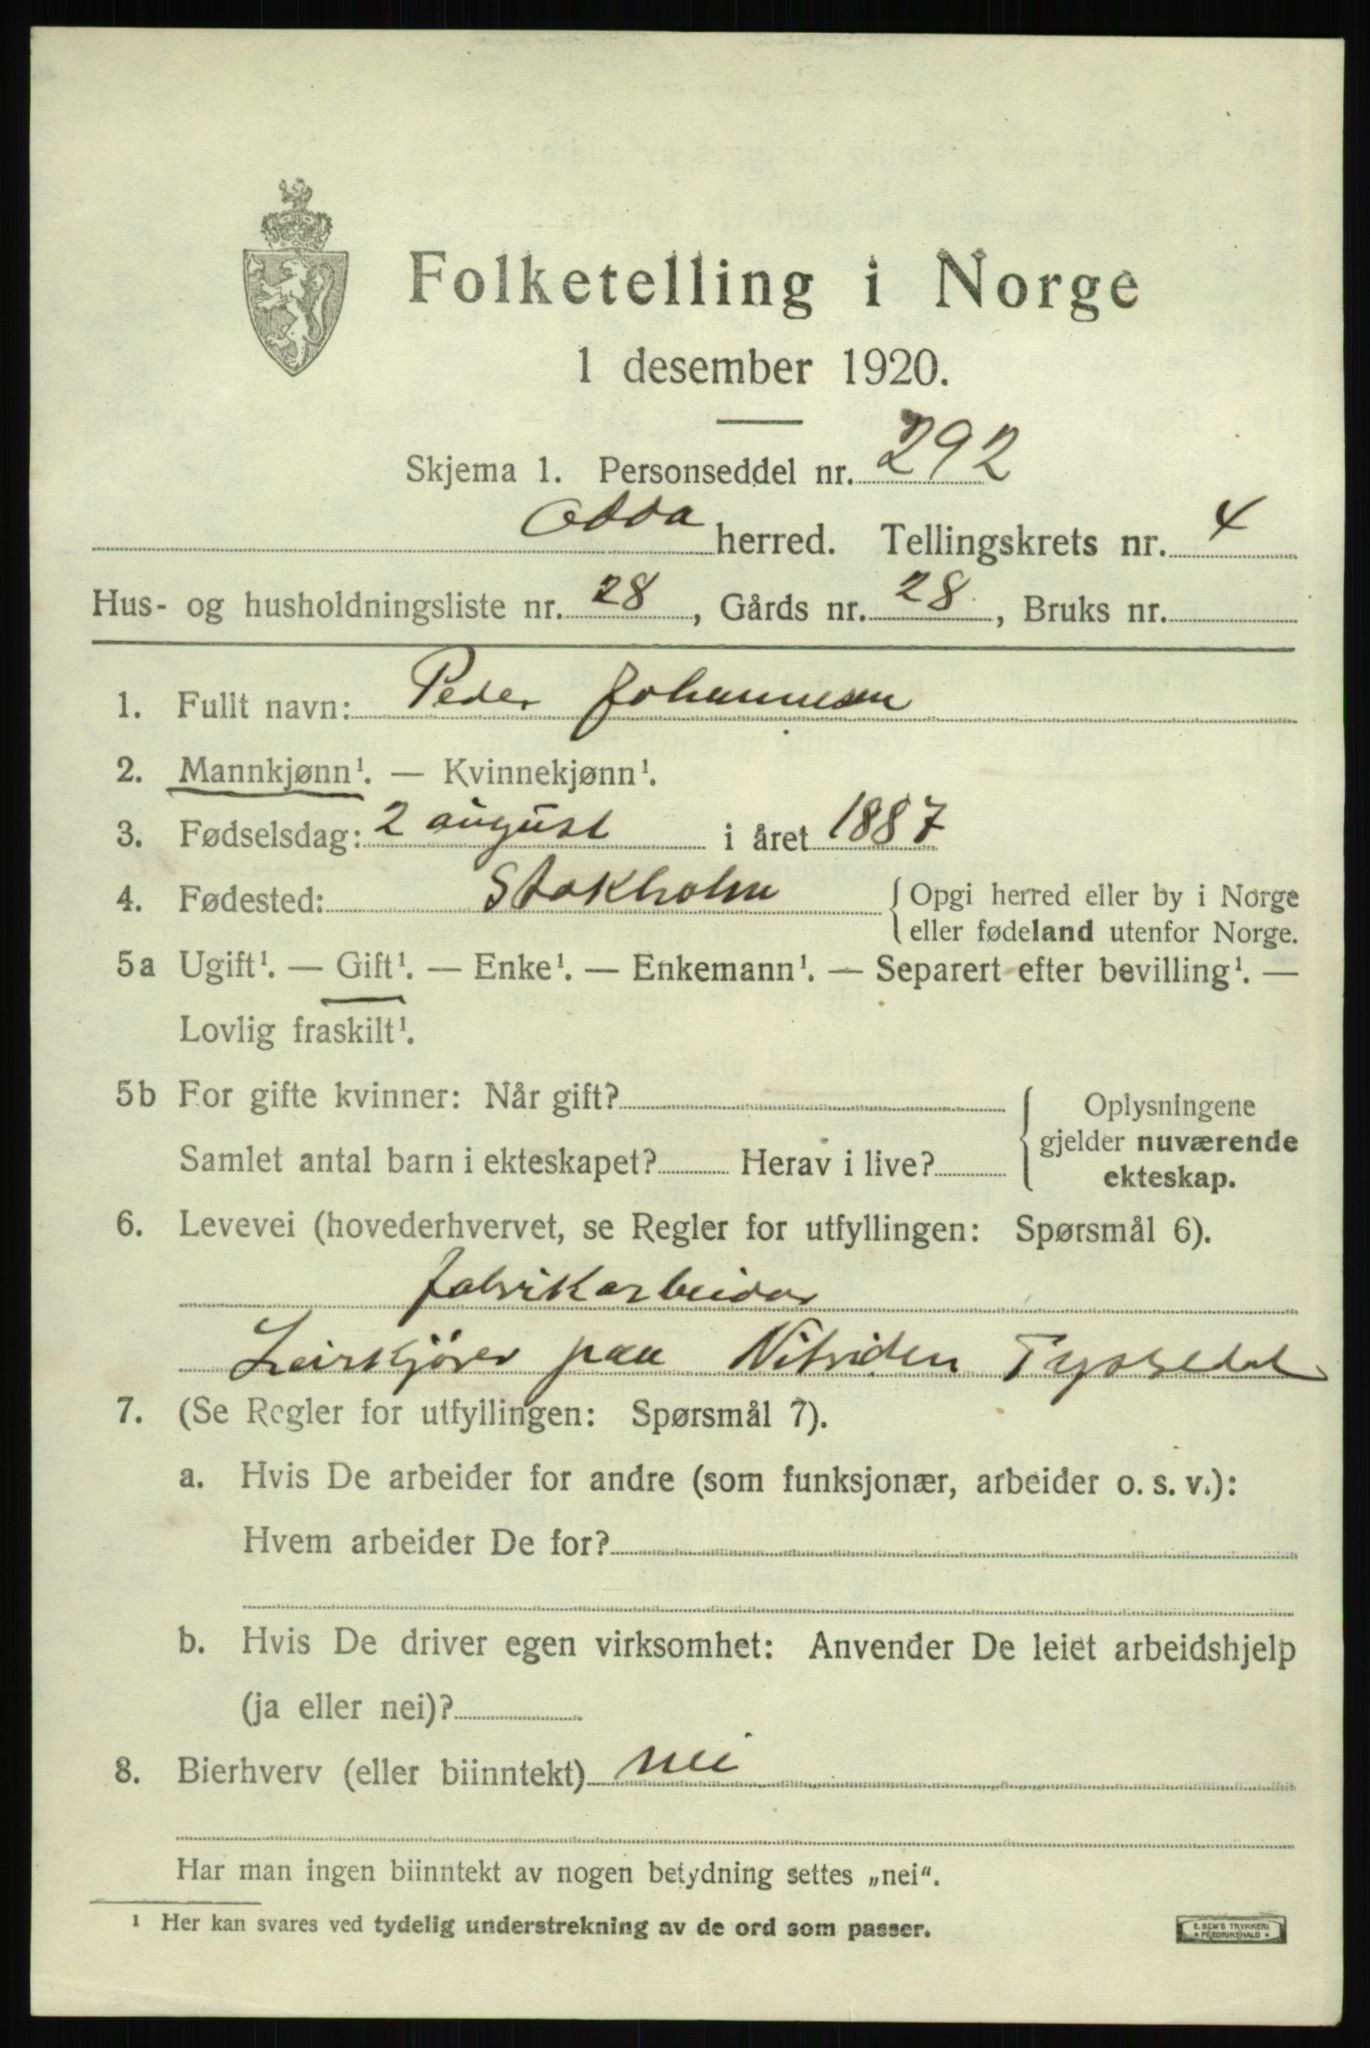 Folketelling i Norge
1 desember 1920.
Skjema 1. Personseddel nr. 292
Odda herred. Tellingskrets nr. 4
Hus- og husholdningsliste nr. 28, Gårds nr. 28, Bruks nr.
1. Fullt navn: Peder Johannesen
2. Mannkjønn¹. — Kvinnekjønn¹.
3. Fødselsdag: 2 august i året 1887
4. Fødested: Stokholm { Opgi herred eller by i Norge
eller fødeland utenfor Norge.
5a Ugift¹. — Gift¹. — Enke¹. — Enkemann¹. — Separert efter bevilling¹. —
Lovlig fraskilt¹.
5b For gifte kvinner: Når gift? { Oplysningene
gjelder nuværende
Samlet antal barn i ekteskapet? Herav i live?
ekteskap.
6. Levevei (hovederhvervet, se Regler for utfyllingen: Spørsmål 6).
fabrikarbeider
Leirkjører paa Nitriden Tyssedal
7. (Se Regler for utfyllingen: Spørsmål 7).
a. Hvis De arbeider for andre (som funksjonær, arbeider o. s. v.):
Hvem arbeider De for?
b. Hvis De driver egen virksomhet: Anvender De leiet arbeidshjelp
(ja eller nei)?
8. Bierhverv (eller biinntekt) nei
Har man ingen biinntekt av nogen betydning settes „nei“.
¹ Her kan svares ved tydelig understrekning av de ord som passer.
E. SEM'S TRYKKERI
FREDRIKSHALD